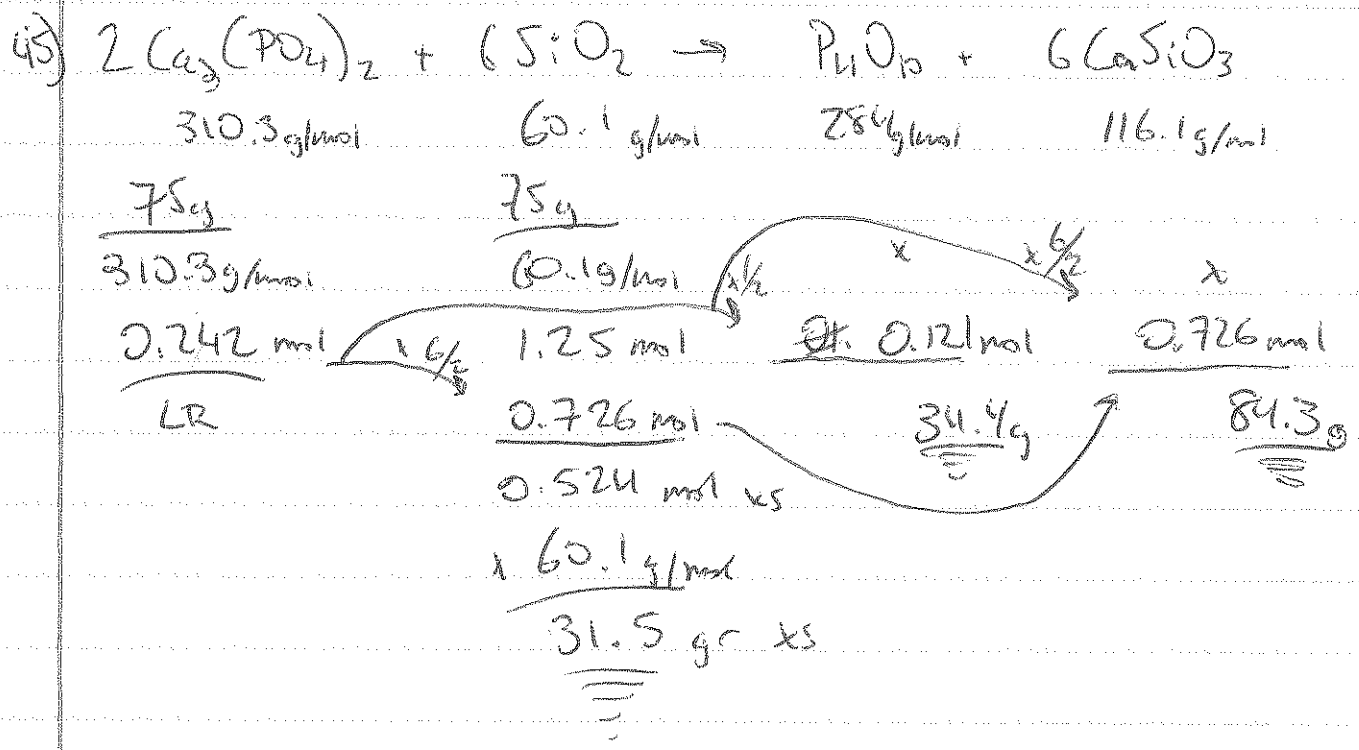 45) 2 Ca3(PO4)2 + 6 SiO2 → P4O10 + 6 CaSiO3
310.3 g/mol 60.1 g/mol 284 g/mol 116.1 g/mol
75g 75g
310.3 g/mol 60.1 g/mol x 1/2 x x 6/2 x
0.242 mol x 6/2 1.25 mol 0.121 mol 0.726 mol
LR 0.726 mol 34.4g 84.3g
0.524 mol xs
x 60.1 g/mol
31.5 gr xs